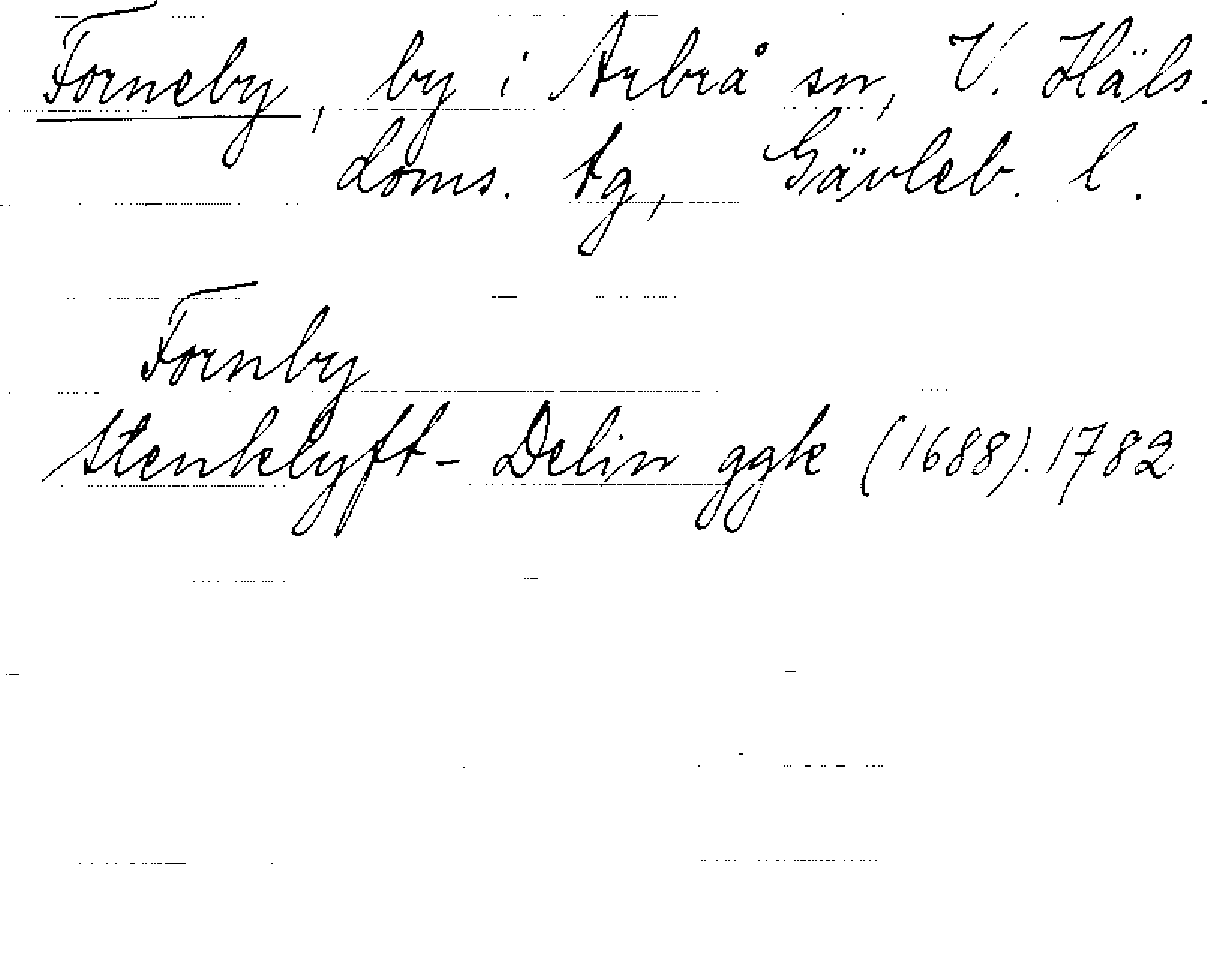 Forneby, by i Arbrå sn, V. Häls.
doms. tg, Gävleb. l.
Fornby
Stenklyft - Delin ggk (1688). 1782